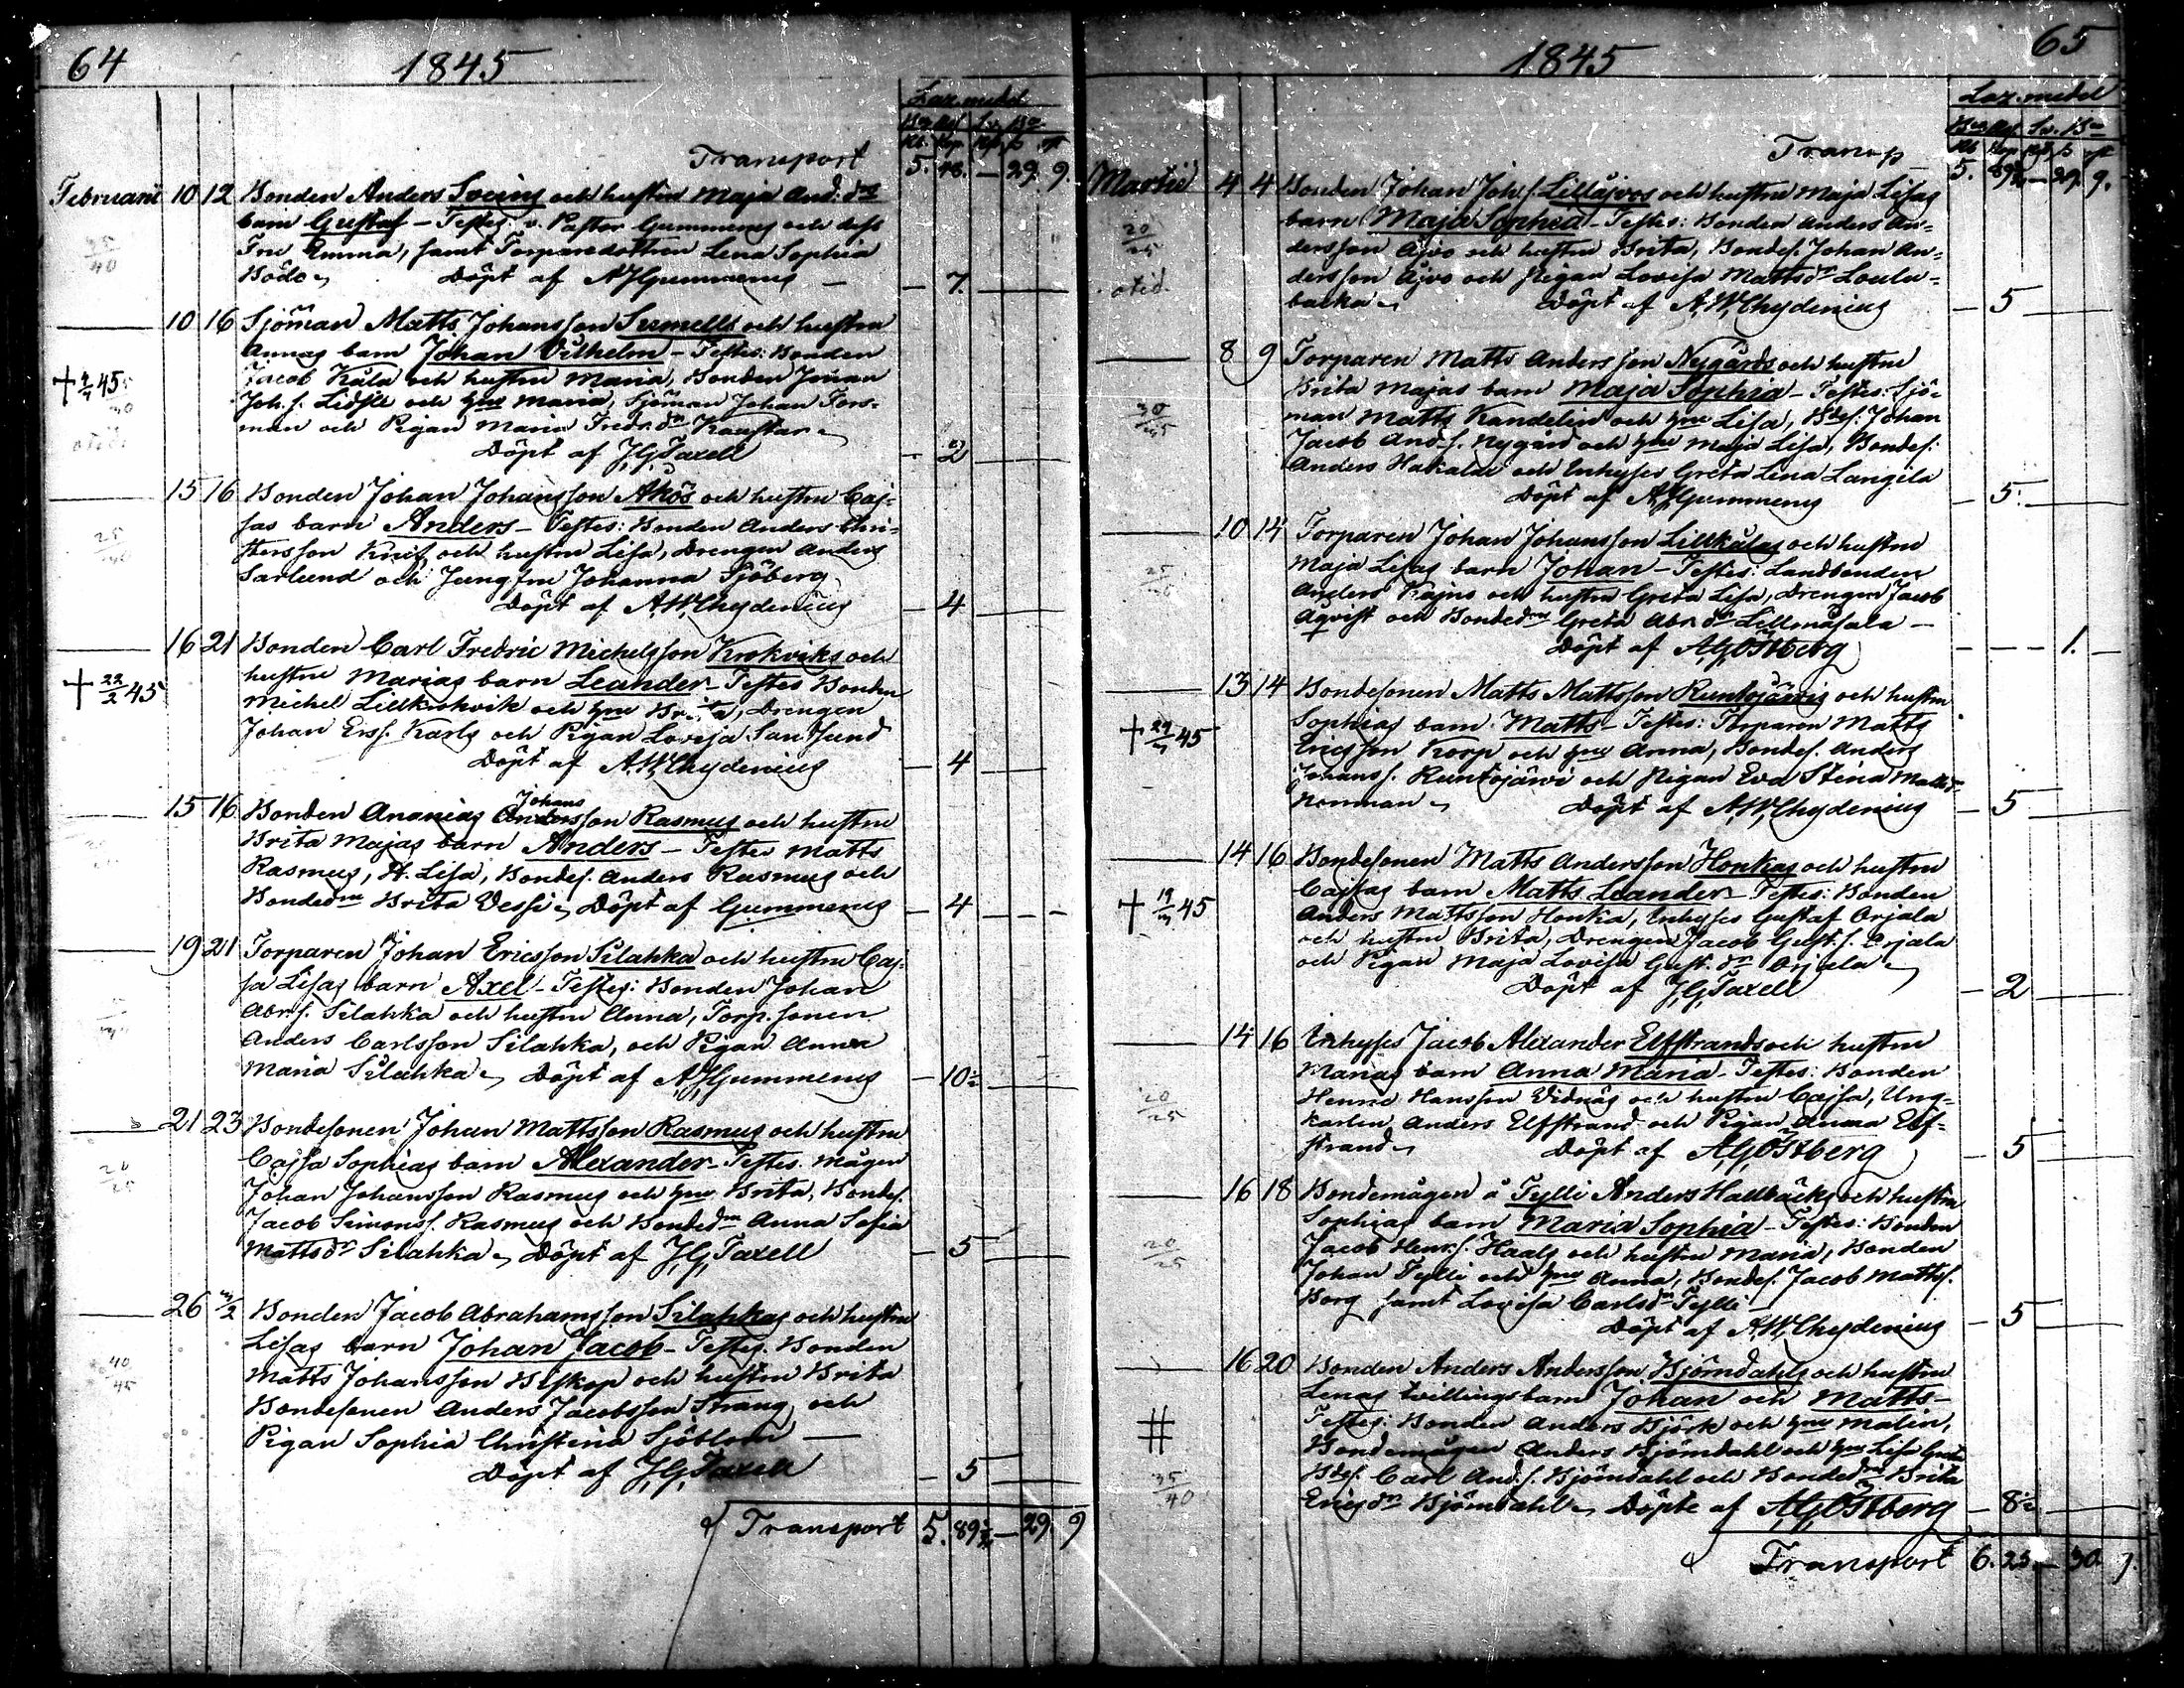 64
1845
Laz. medel
Transport 5. 48. — 29. 9.
Februarii 10 12 Bonden Anders Sveins och hustru Maja And: drs
barn Gustaf — Testes: v. Pastor Gummerus och dess
Fru Emma, samt Torparedottren Lena Sophia
35/40
Döpt af AJGummerus — 7.
10 16 Sjöman Matts Johansson Sumells och hustru
Annas barn Johan Vilhelm — Testes: Bonden
Jacob Kåla och hustru Maria, Bonden Johan
+ 45
Joh. s. Lidsle och hus Maria, Sjöman Johan Fors-
man och Pigan Maria Fredr. dr Kaustar
Döpt af JGTaxell — 2
15 16 Bonden Johan Johansson Åkös och hustru Caj-
sas barn Anders — Testes: Bonden Anders Chri-
stersson Knif och hustru Lisa, Drengen Anders
Sarlund och Jungfru Johanna Sjöberg
Döpt af A.W.Chydenius — 4
16 21 Bonden Carl Fredric Michelsson Krokviks och
hustru Marias barn Leander — Testes Bonden
+ 22/2 45
Michel Lillkrokvik och hus Brita, Drengen
Johan Ers. Karls och Pigan Lovisa Sandsund
Döpt af A.W.Chydenius — 4
Johans
15 16 Bonden Ananias Andersson Rasmus och hustru
Brita Majas barn Anders — Testes Matts
Rasmus, H. Lisa, Bondes. Anders Rasmus och
Bondedn Brita Vessi Döpt af Gummerus — 4
19 21 Torparen Johan Ericsson Silahka och hustru Caj-
sa Lisas barn Axel — Testes: Bonden Johan
Abr. s. Silahka och hustru Anna, Torp. sonen
Anders Carlsson Silahka, och Pigan Anna
Maria Silahka Döpt af AJGummerus — 10
21 23 Bondesonen Johan Mattsson Rasmus och hustru
Cajsa Sophias barn Alexander — Testes. Mågen
20/25
Johan Johansson Rasmus och hus Brita, Bondes.
Jacob Simonss. Rasmus och Bondedn Anna Sofia
Matts dr Silahka Döpt af JGTaxell — 5
26 2/3 Bonden Jacob Abrahamsson Silahkas och hustru
Lisas barn Johan Jacob — Testes. Bonden
40/45
Matts Johansson Biskop och hustru Brita
Bondesonen Anders Jacobsson Strang och
Pigan Sophia Christina Sjöblom —
Döpt af JGTaxell — 5
Transport 5. 89 — 29. 9
65
1845
Laz. medel
Transp — 5. 89 — 29. 9.
Martii 4 4 Bonden Johan Joh. s. Lillåjvos och hustru Maja Lisas
barn Maja Sophia — Testes: Bonden Anders An-
20/25
dersson Åjvo och hustru Brita, Bondes. Johan An-
dersson Åjvo och Pigan Lovisa Mattsdr Loulu-
backa Döpt af A.W.Chydenius — 5
8 9 Torparen Matts Andersson Nygårds och hustru
Brita Majas barn Maja Sophia — Testes: Sjö-
man Matts Kandelin och hus Lisa, Bdes. Johan
Jacob And. s. Nygård och hus Maja Lisa, Bondes.
Anders Hakala och Inhyses Greta Lena Langila
Döpt af AJGummerus — 5
10 14 Torparen Johan Johansson Lillkålas och hustru
Maja Lisas barn Johan — Testes: Landbonden
Anders Kajno och hustru Greta Lisa, Drengen Jacob
Åqvist och Bondedn Greta Abr. dr Lillmåsala —
Döpt af AGÖstberg — 1.
13 14 Bondesonen Matts Mattsson Runtojärvis och hustru
Sophias barn Matts — Testes: Torparen Matts
+ 45
Ericsson Korp och hus Anna, Bondes. Anders
Johanss. Runtojärvi och Pigan Eva Stina Mattsd.
Norrman Döpt af A.W.Chydenius — 5
14 16 Bondesonen Matts Andersson Honkas och hustru
Cajsas barn Matts Leander — Testes: Bonden
+ 19/3 45
Anders Mattsson Honka, Inhyses Gustaf Orjala
och hustru Brita, Drengen Jacob Gust. s. Orjala
och Pigan Maja Lovisa Gust. dr Orjala
Döpt af JGTaxell — 2
14 16 Inhyses Jacob Alexander Elfstrands och hustru
Marias barn Anna Maria — Testes: Bonden
20/25
Henric Hansson Vidnäs och hustru Cajsa, Ung-
karlen Anders Elfstrand och Pigan Anna Elf-
strand Döpt af AGÖstberg — 5
16 18 Bondemågen å Fylli Anders Hallbäcks och hustru
Sophias barn Maria Sophia — Testes: Bonden
20/25
Jacob Henr. s. Haals och hustru Maria, Bonden
Johan Fylli och hus Anna, Bondes. Jacob Mattss.
Borg samt Lovisa Carlsdr Fylli
Döpt af A.W.Chydenius — 5
16 20 Bonden Anders Andersson Björndahls och hustru
Lenas tvillingsbarn Johan och Matts —
Testes: Bonden Anders Björk och hus Malin,
Bondemågen Anders Björndahl och hus Lisa Greta
35/40
Bdes. Carl And. s. Björndahl och Bondedn Brita
Ericsdr Björndahl Döpte af AGÖstberg — 8
Transport 6. 23 — 30. 9.